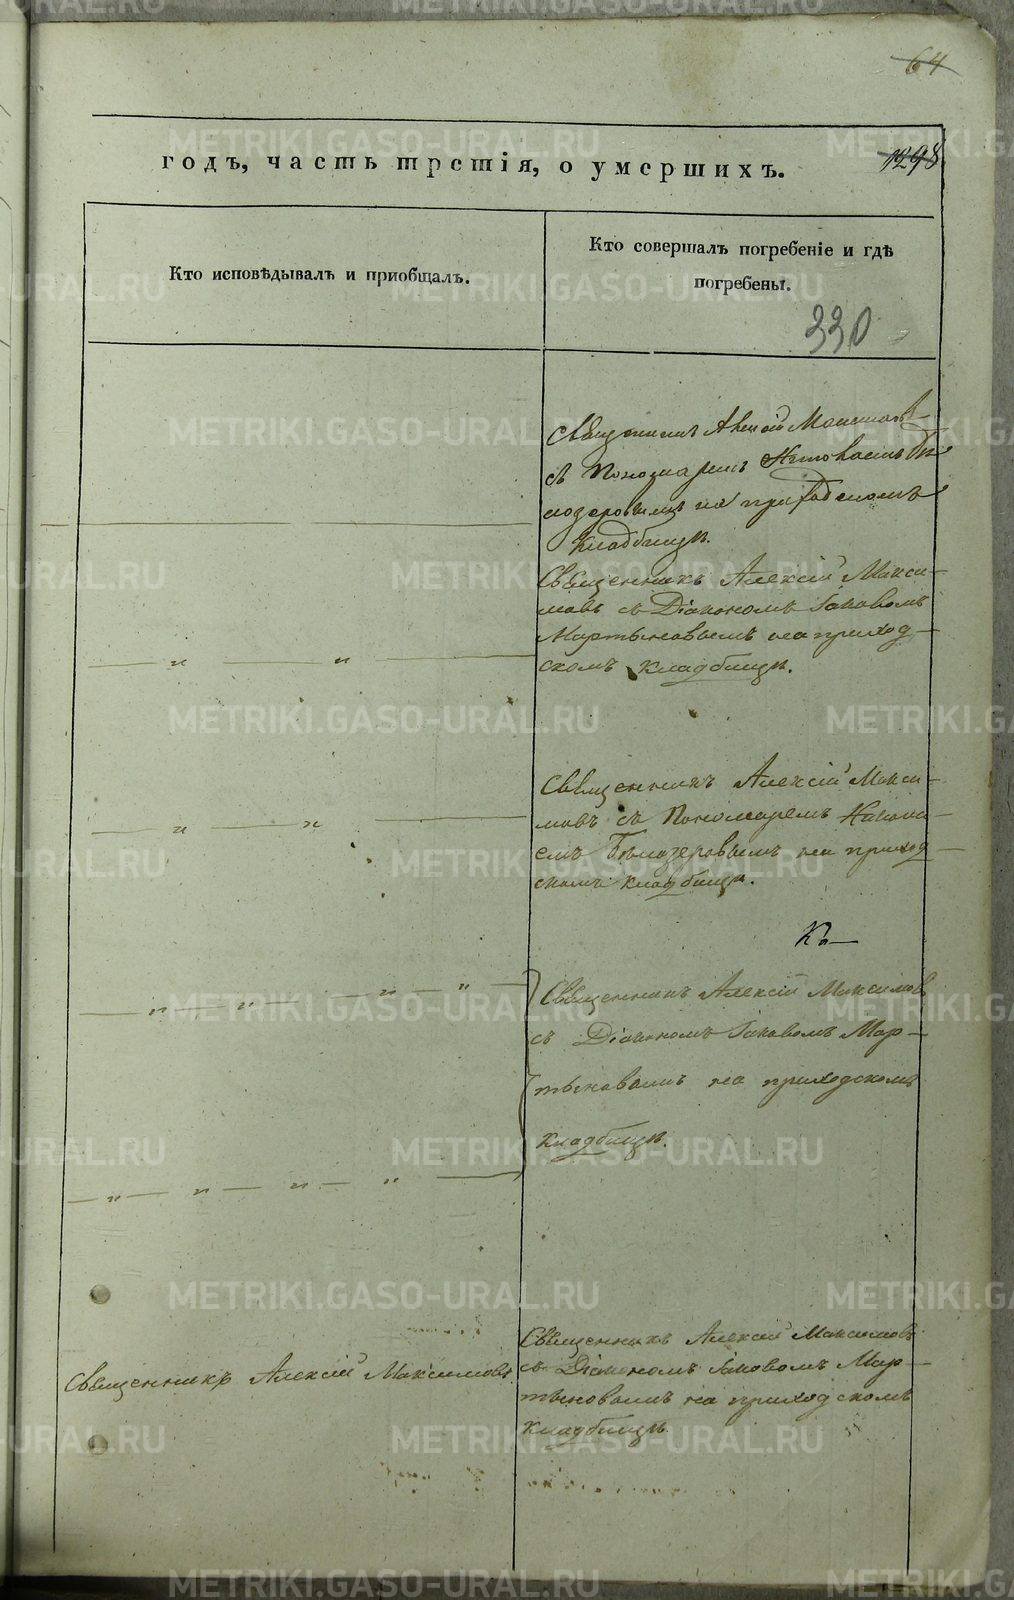 64
годъ, часть третія, о умершихъ.
1248
Кто исповѣдывалъ и приобщалъ.
Кто совершалъ погребеніе и гдѣ
погребены.
330
Священникъ Алексій Максимовъ
съ Пономаремъ Бѣ
лозеровымъ на приходскомъ
кладбищѣ.
Священникъ Алексій Макси-
мовъ съ Діакономъ Іаковомъ
Мартыновымъ на приход-
скомъ кладбищѣ.
Священникъ Алексій Макси-
мовъ съ Пономаремъ
Бѣлозеровымъ на приход-
скомъ кладбищѣ.
Къ
Священникъ Алексій Максимовъ
съ Діакономъ Іаковомъ Мар-
тыновымъ на приходскомъ
кладбищѣ.
Священникъ Алексій Максимовъ
Священникъ Алексій Максимовъ
съ Діакономъ Іаковомъ Мар-
тыновымъ на приходскомъ
кладбищѣ.
METRIKI.GASO-URAL.RU